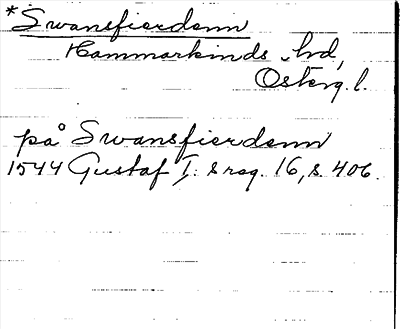 *Swansfierdenn
Hammarkinds hd,
Österg. l.
på Swansfierdenn
1544 Gustaf I:s reg. 16, s. 406.